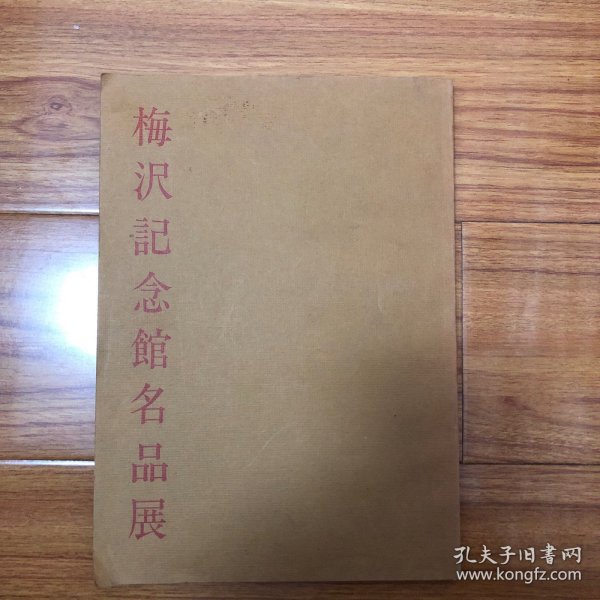 梅沢記念館名品展
孔夫子旧書网
www.kongfz.com